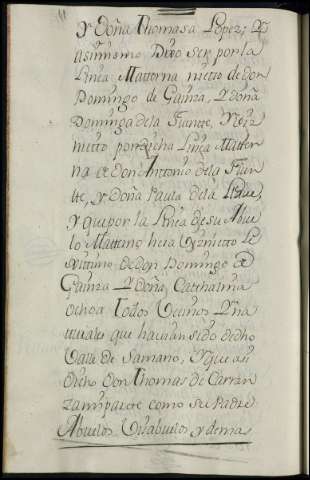 y Doña Thomasa Lopez; Y
asimismo Dijo ser por la
Linea Matterna nietto de don
Domingo de Gainza, y Doña
Dominga dela Fuentte, Viz
nietto por dicha Linea Matter
na de don Antonio dela Fuen
tte, y Doña Paula dela
y que por la Linea de su Abue
lo Matterno hera Viznietto Le
xittimo de don Domingo de
Gainza y Doña Catthalina
Ochoa Todos Vecinos y Na
turales que havian sido de dho
Valle de Samano, Y que asi
dicho Don Thomas de Carran
za mi parte como su Padre
Abuelos Visabuelos y demas